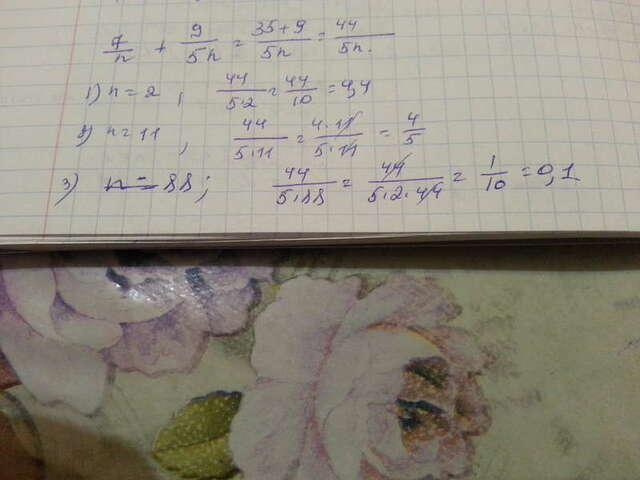 7/n + 9/5n = 35+9/5n = 44/5n.
1) n = 2, 44/5·2 = 44/10 = 4,4
2) n = 11, 44/5·11 = 4·11/5·11 = 4/5
3) n = 88; 44/5·88 = 44/5·2·44 = 1/10 = 0,1